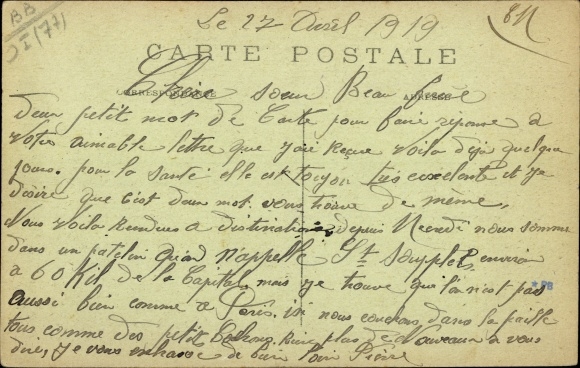 BB
Le 27 Avril 1919
CARTE POSTALE
CORRESPONDANCE
ADRESSE
Chère soeur Beau frere
Deux petit mot de Carte pour faire reponse à
votre aimable lettre que j'ai reçue voila déjà quelque
jours. pour la santé elle est toujou très excelante et je
désire que c'est deux mot vous trouve de même,
Nous voila rendues a distination, depuis Mecredi nous somme
dans un patelin qu'on n'appelle St Soupplets, environ
a 60 Kil de la Capital, mais je trouve que l'on n'est pas
aussi bien comme a Paris, ici nous couchons dans la paille
tous comme des petit cochons. Rien plus de Nouveaux a vous
dire, je vous embrasse de bien loin Pierre
*PB